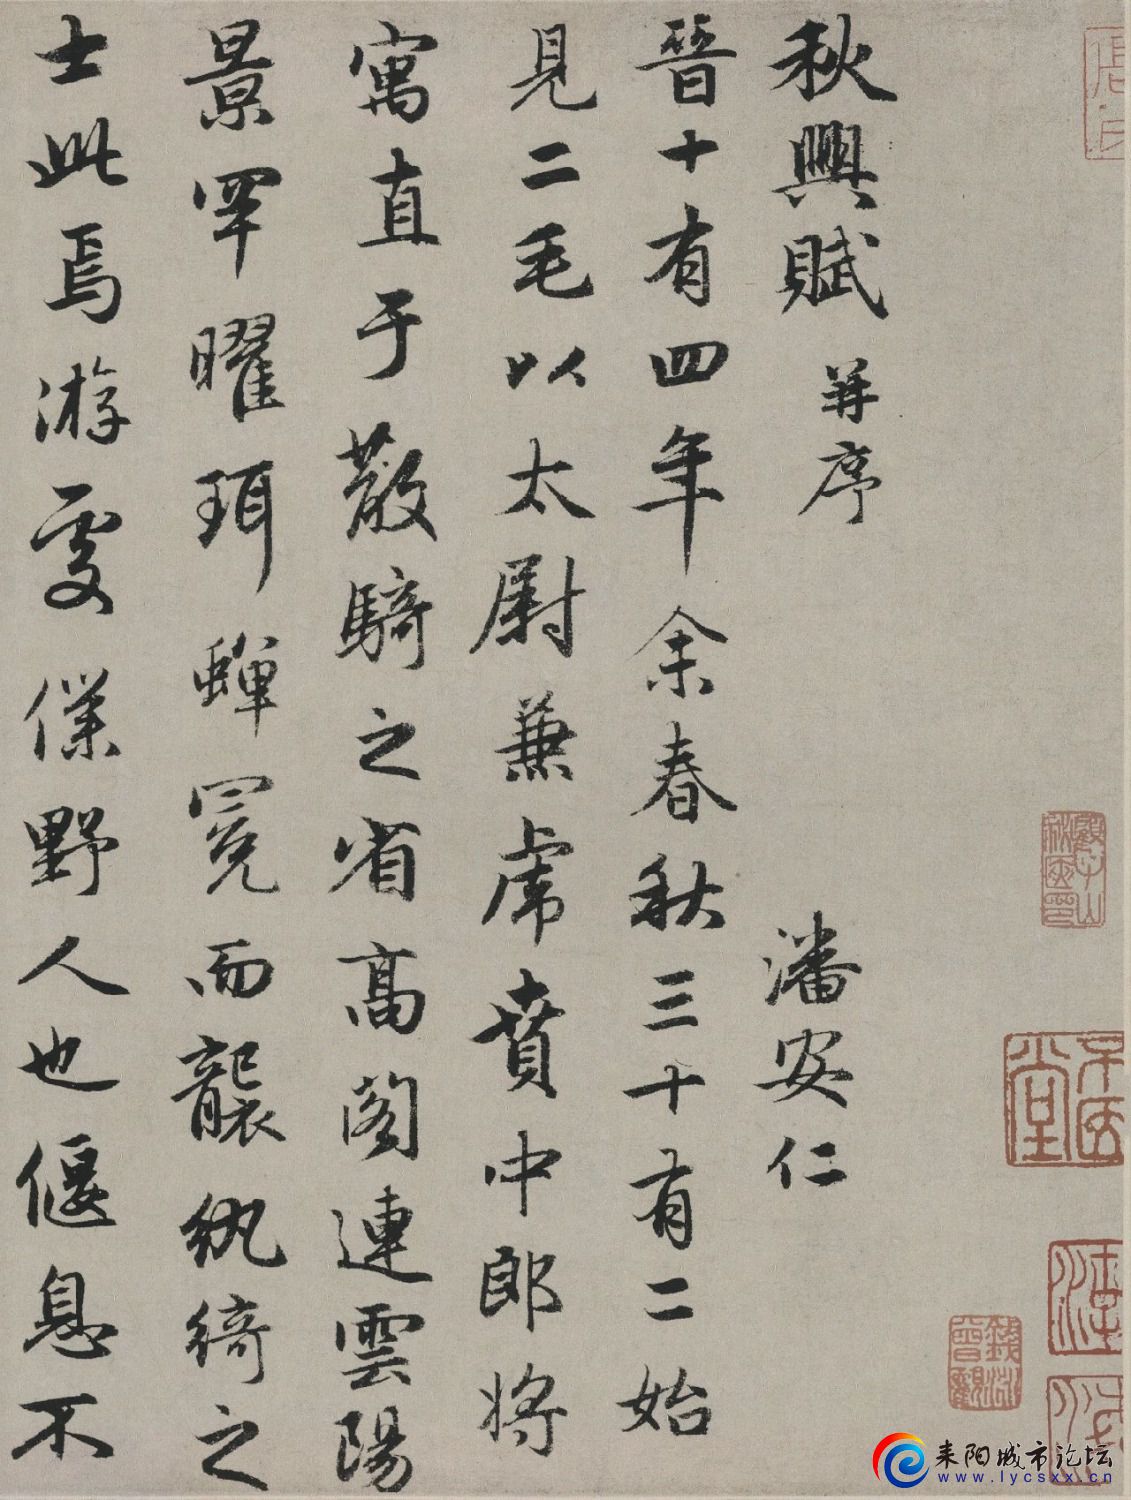 秋興賦 并序 潘安仁
晉十有四年余春秋三十有二始
見二毛以太尉兼虎賁中郎將
寓直于散騎之省高閣連雲陽
景罕曜珥蟬冕而襲紈綺之
士此焉游處僕野人也偃息不
耒阳城市论坛
www.lycsxx.cn